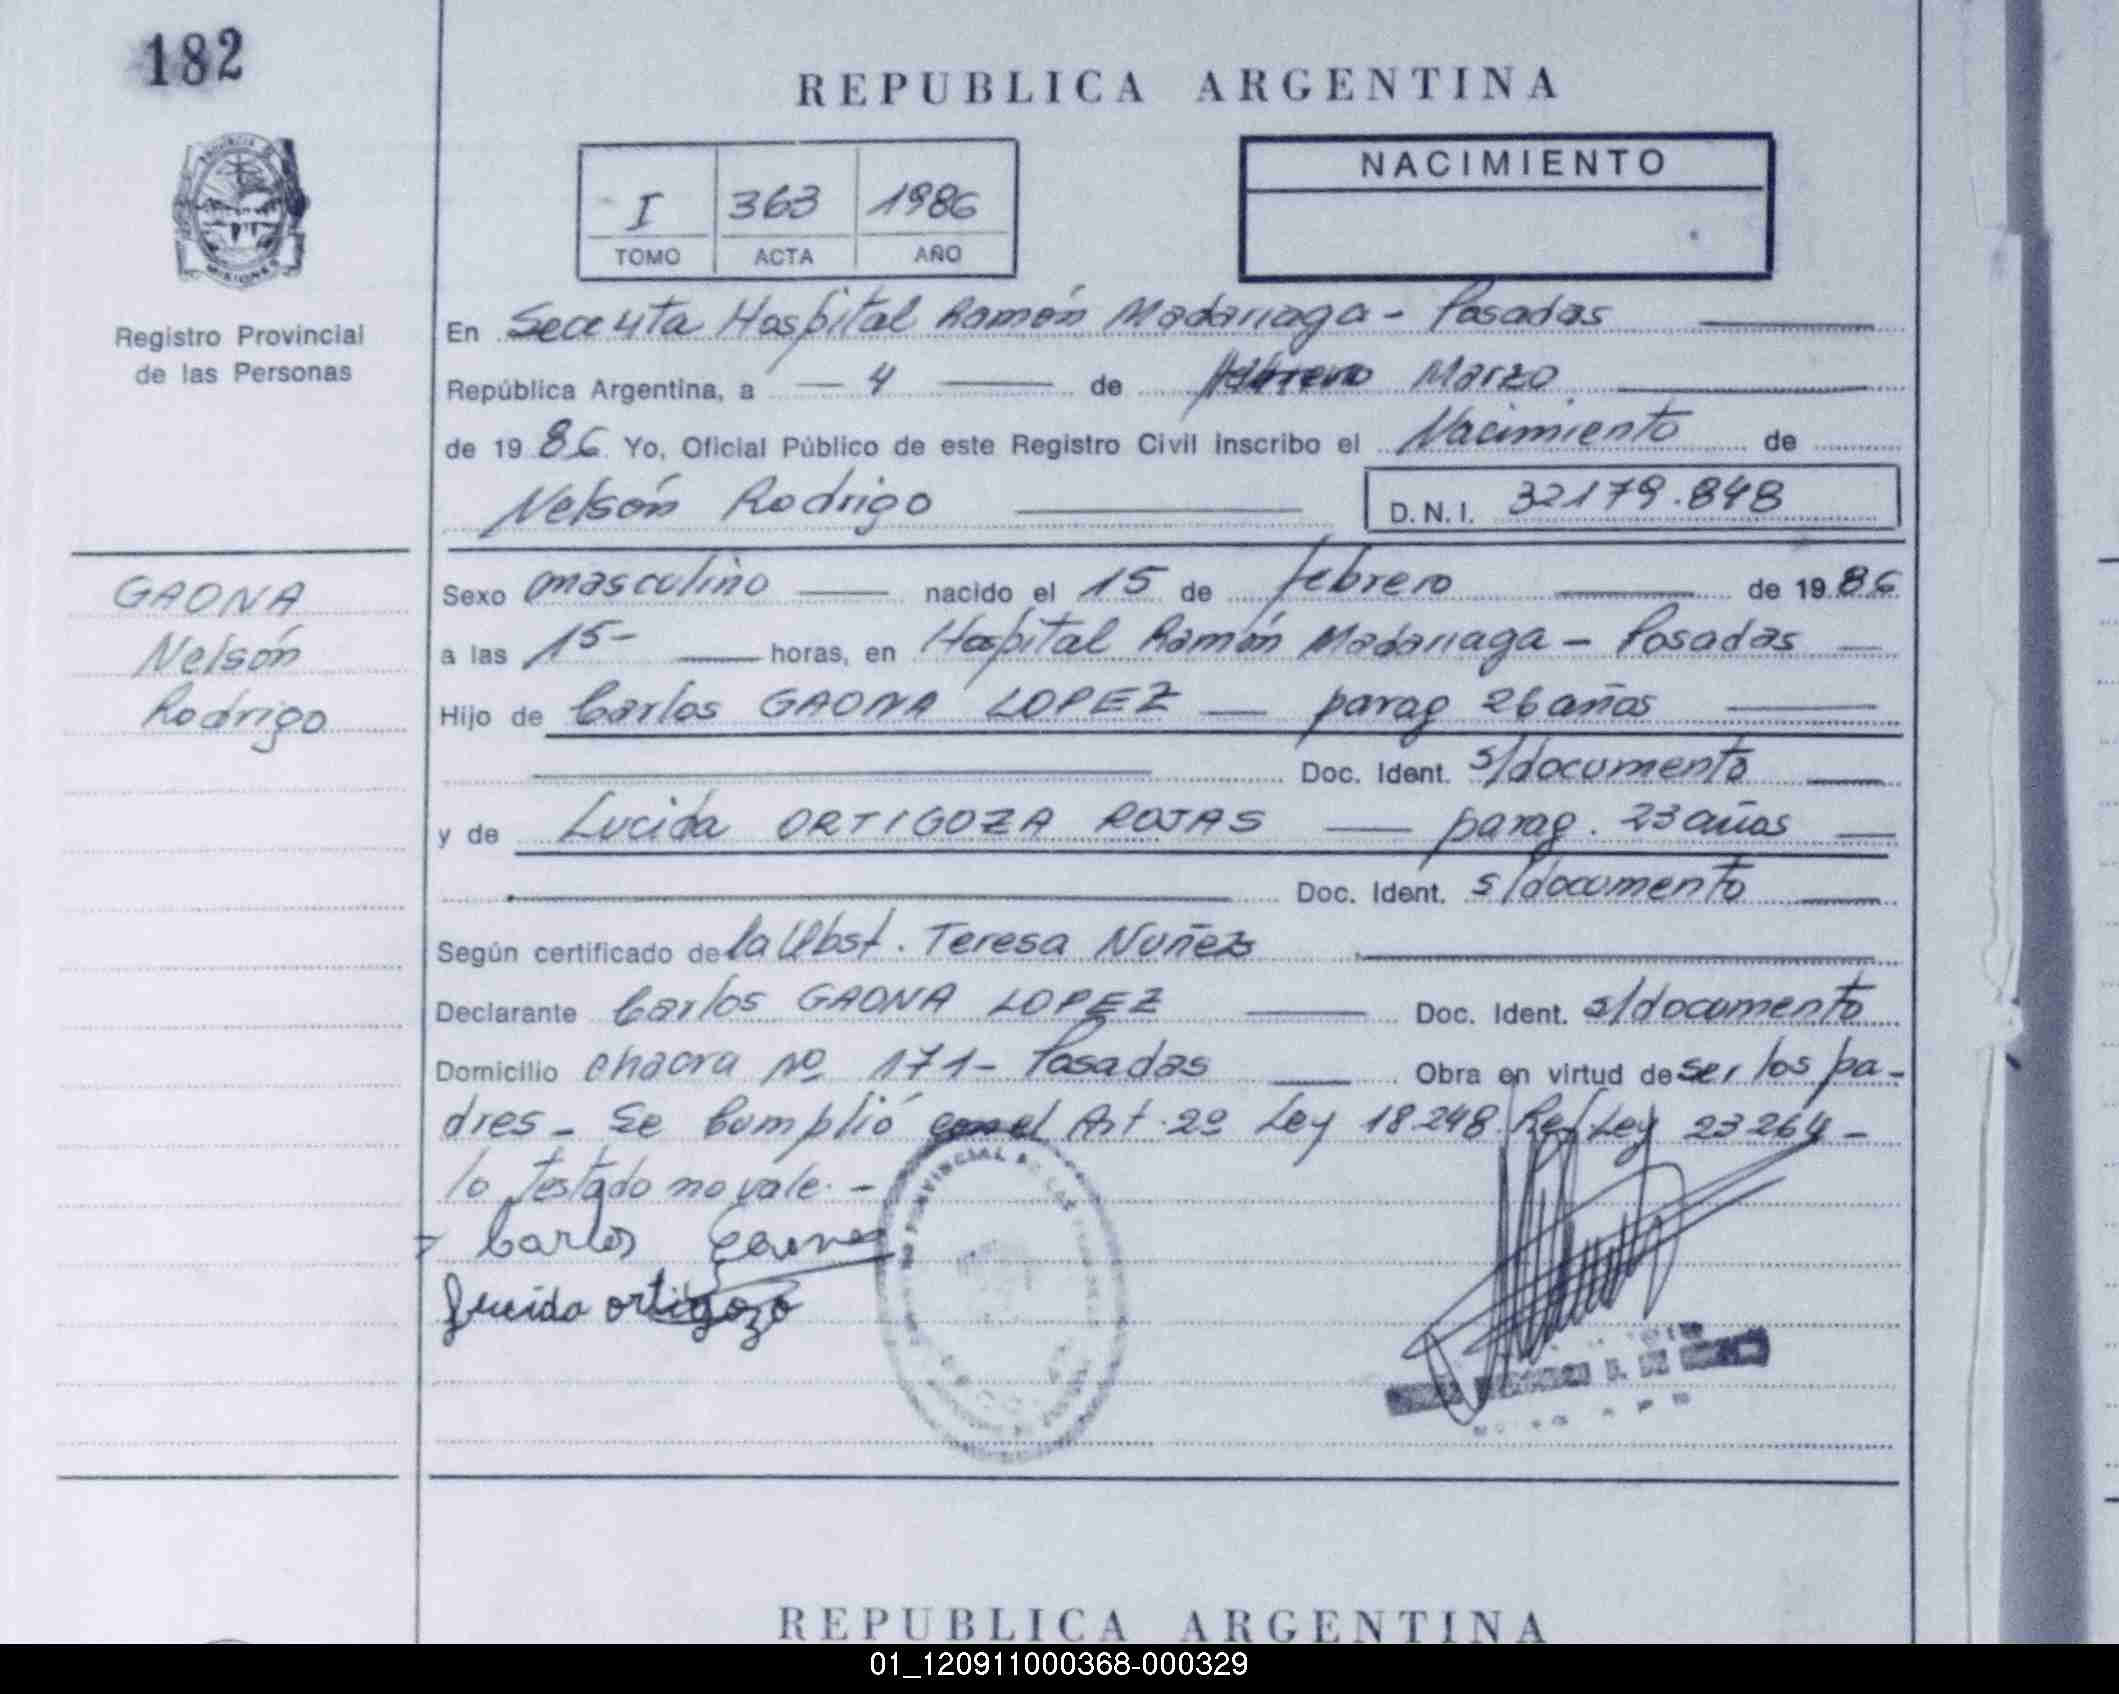 182
REPUBLICA ARGENTINA
I 363 1986
TOMO ACTA AÑO
NACIMIENTO
MISIONES
Registro Provincial
de las Personas
En Secc 4ta Hospital Ramón Madariaga - Posadas
República Argentina, a 4 de febrero Marzo
de 1986 Yo, Oficial Público de este Registro Civil inscribo el Nacimiento de
Nelsón Rodrigo D.N.I. 32179.848
GAONA
Nelsón
Rodrigo
Sexo masculino nacido el 15 de febrero de 1986
a las 15- horas, en Hospital Ramón Madariaga - Posadas
Hijo de Carlos GAONA LOPEZ parag 26 años
Doc. Ident. s/documento
y de Lucida ORTIGOZA ROJAS parag. 23 años
Doc. Ident. s/documento
Según certificado de la Obst. Teresa Nuñez
Declarante Carlos GAONA LOPEZ Doc. Ident. s/documento
Domicilio chacra nº 171- Posadas Obra en virtud de ser los pa-
dres - Se Cumplió con el Art. 2º Ley 18248 Ref Ley 23264 -
lo testado no vale. -
Carlos Gaona
Lucida ortigoza
PROVINCIAL DE LAS
REPUBLICA ARGENTINA
01_120911000368-000329